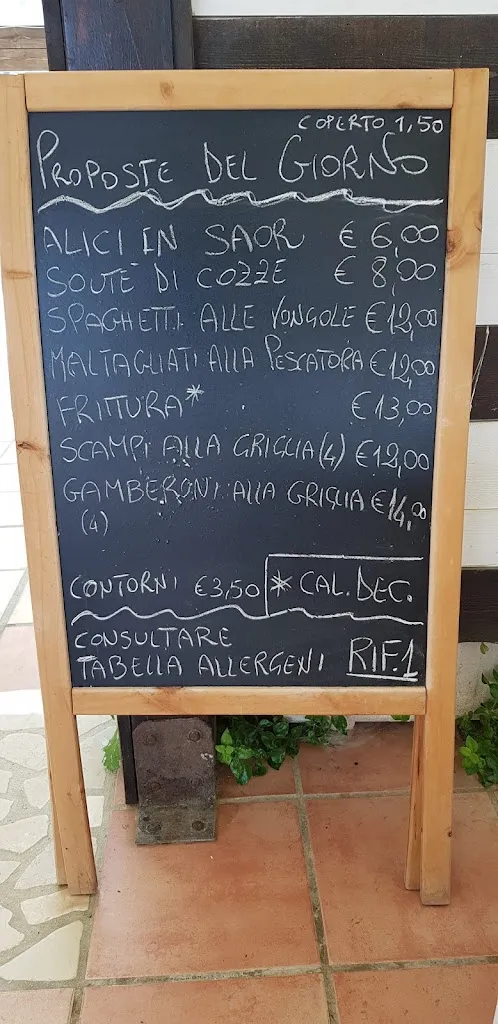 COPERTO 1,50
PROPOSTE DEL GIORNO
ALICI IN SAOR € 6,00
SOUTÈ DI COZZE € 8,00
SPAGHETTI ALLE VONGOLE € 12,00
MALTAGLIATI ALLA PESCATORA € 12,00
FRITTURA* € 13,00
SCAMPI ALLA GRIGLIA (4) € 12,00
GAMBERONI ALLA GRIGLIA € 14,00
(4)
CONTORNI € 3,50 * CAL. DEC.
CONSULTARE
TABELLA ALLERGENI RIF.1